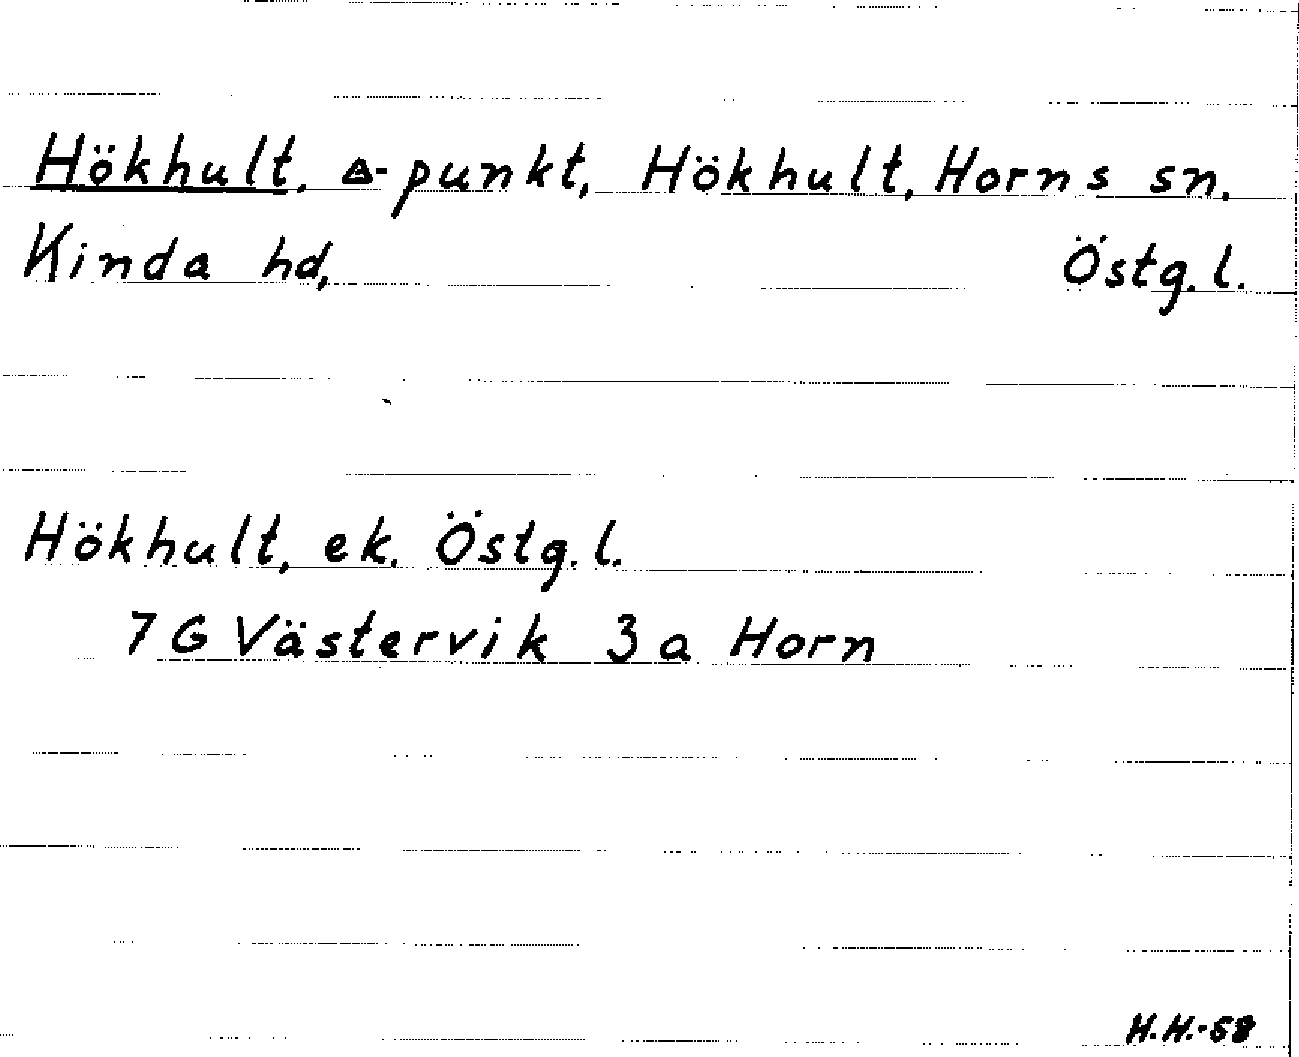 Hökhult, △-punkt, Hökhult, Horns sn.
Kinda hd, Östg. l.
Hökhult, ek. Östg. l.
7 G Västervik 3 a Horn
H.H.-58